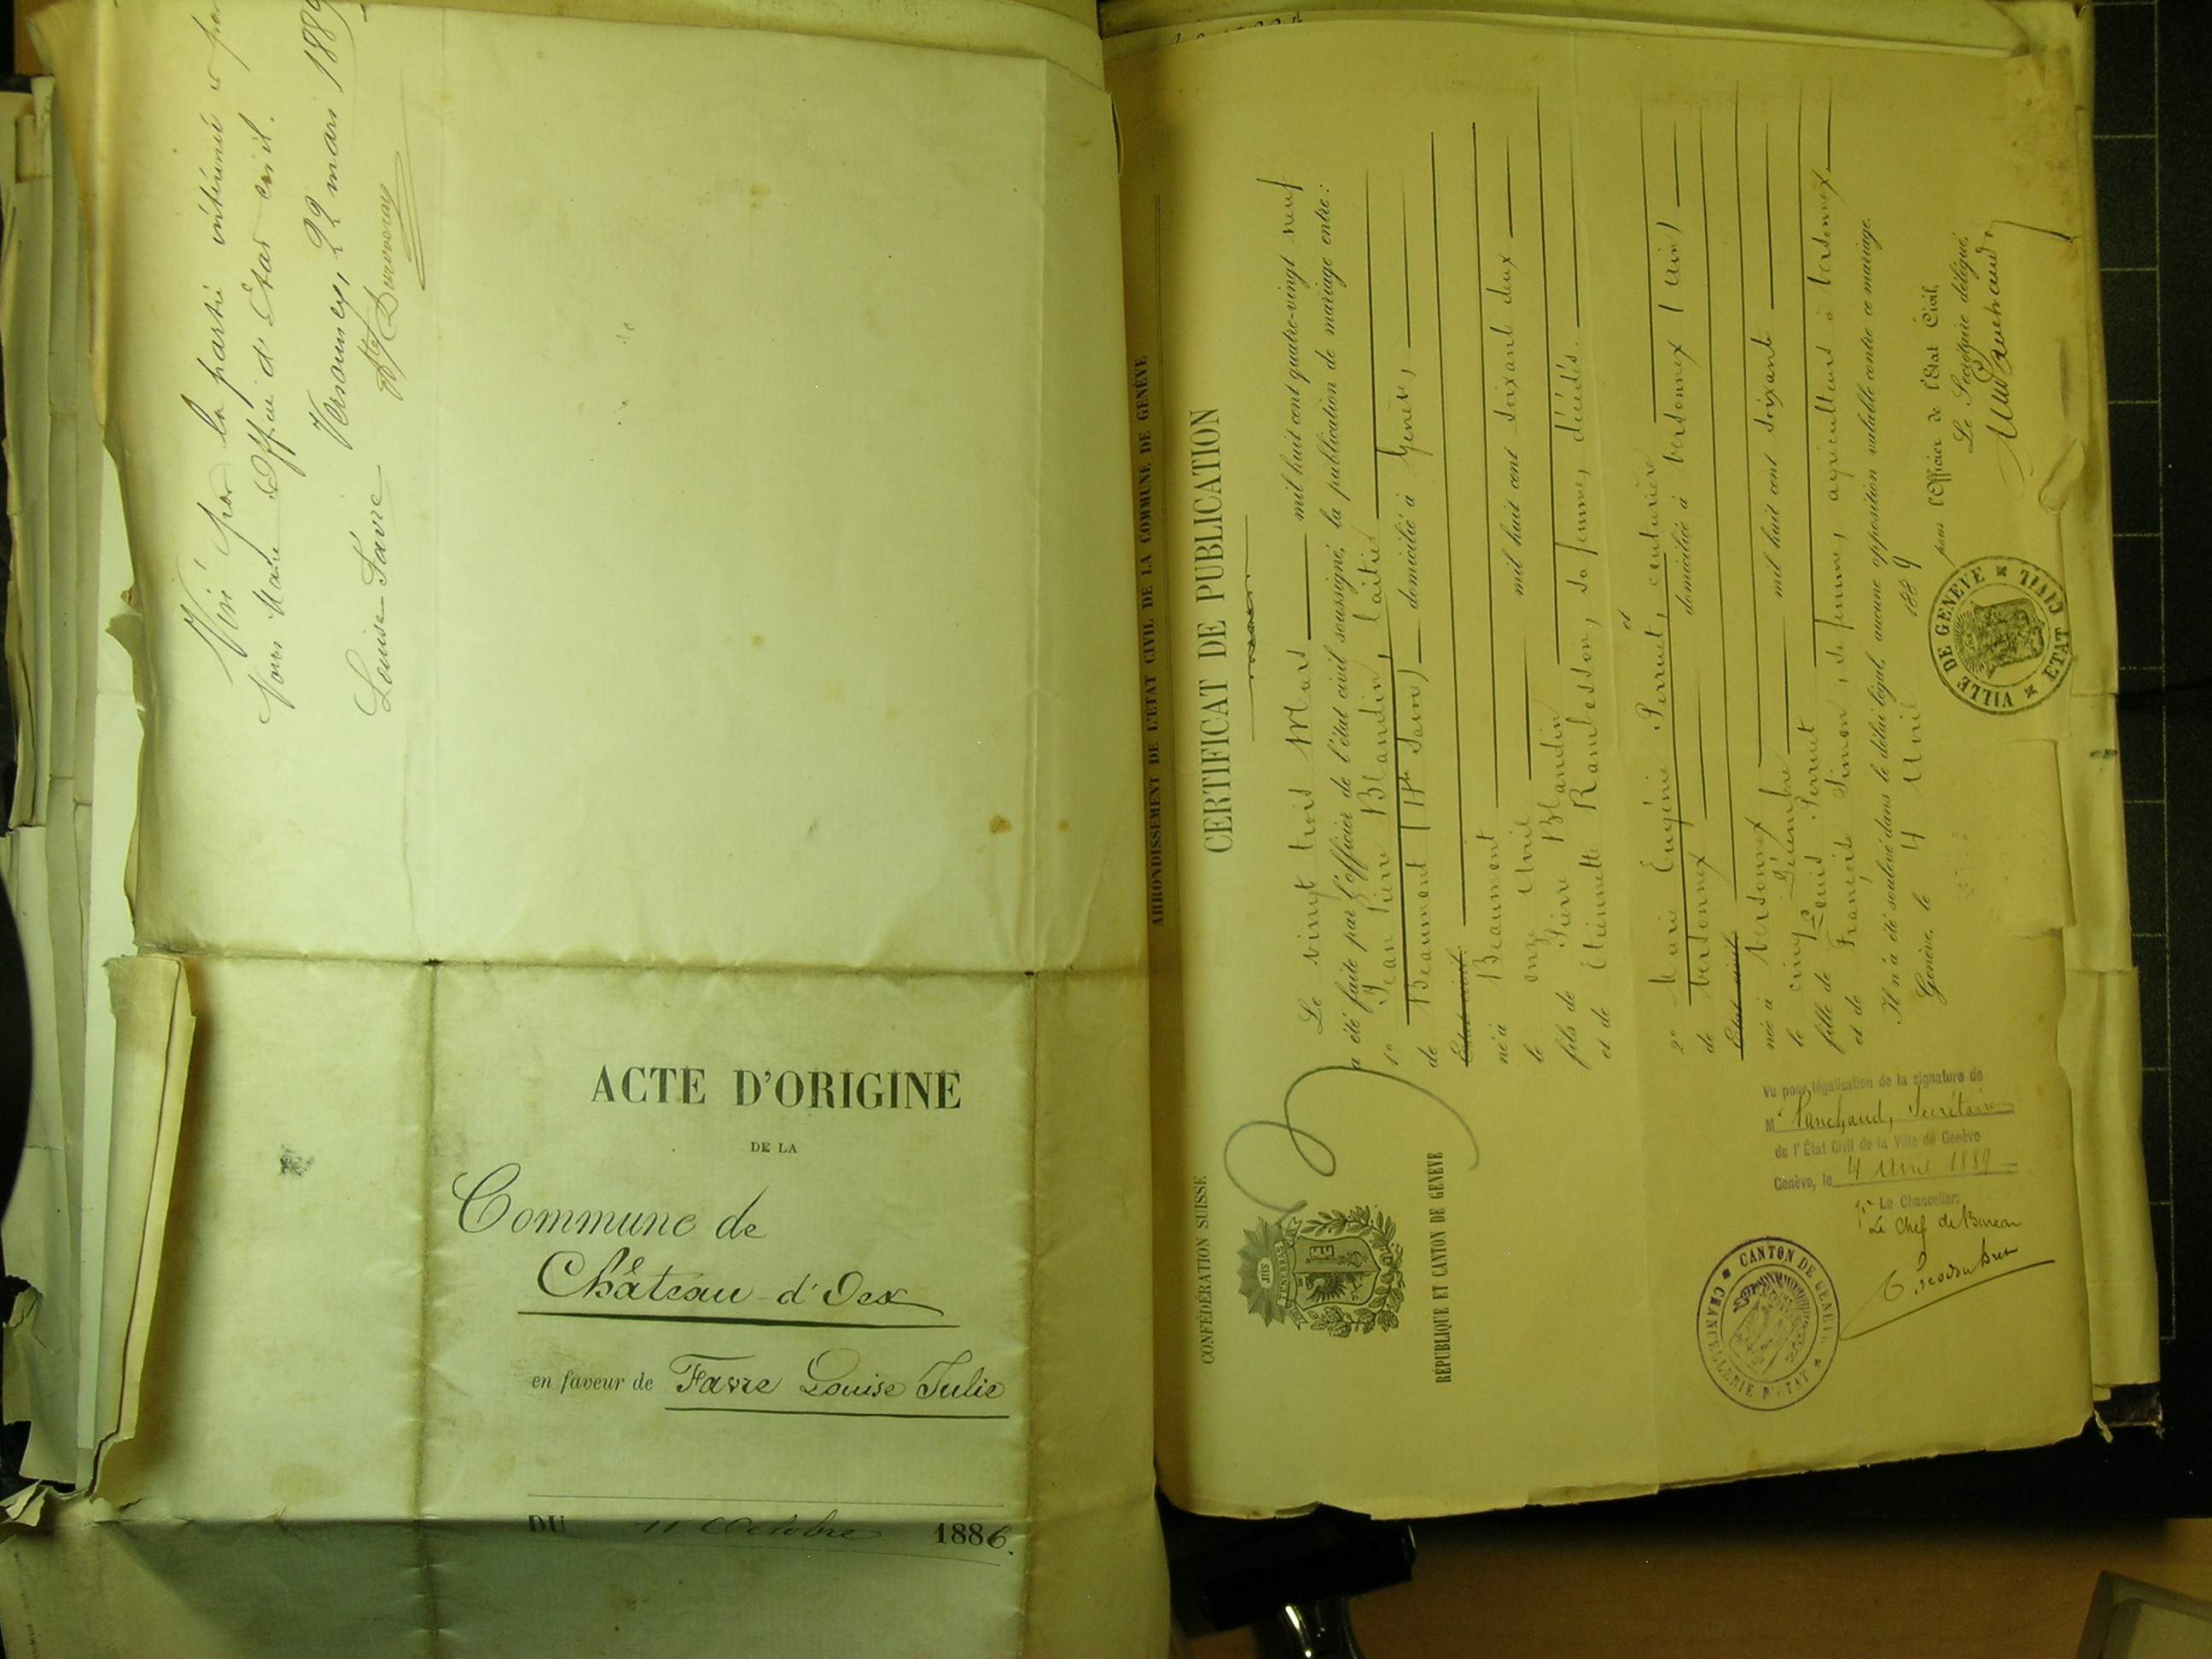 Visé par la partie intéressée
Nous Maire Officier d'Etat civil.
Versonnex, 22 mars 1889
Louise Favre
ACTE D'ORIGINE
DE LA
Commune de
Château-d'Oex
en faveur de Favre Louise Julie
DU 11 Octobre 1886.
ARRONDISSEMENT DE L'ÉTAT CIVIL DE LA COMMUNE DE GENÈVE
CONFÉDÉRATION SUISSE
RÉPUBLIQUE ET CANTON DE GENÈVE
CERTIFICAT DE PUBLICATION
Le vingt trois Mars mil huit cent quatre-vingt neuf
a été faite par l'officier de l'état civil soussigné, la publication de mariage entre:
1º Jean Pierre Blandin, laitier
de Beaumont (Hte Savoie) domicilié à Genève,
Etat civil:
né à Beaumont
le onze Avril mil huit cent soixante deux
fils de Pierre Blandin
et de Etiennette Rambosson, sa femme, décédés.
et
2º Marie Eugénie Perruet, couturière
de Versonnex domiciliée à Versonnex (Ain)
Etat civil
née à Versonnex
le cinq Décembre mil huit cent soixante
fille de Louis Perruet
et de Françoise Simon, sa femme, agriculteurs à Versonnex
Il n'a été soulevé dans le délai légal, aucune opposition valable contre ce mariage.
Genève, le 4 Avril 1889
pour l'Officier de l'Etat Civil,
Le Secrétaire délégué,
VILLE DE GENÈVE
ETAT CIVIL
Vu pour légalisation de la signature de
Mr Panchaud, Secrétaire
de l'État Civil de la Ville de Genève
Genève, le 4 Avril 1889
pr Le Chancelier:
Le Chef de Bureau
CANTON DE GENÈVE
CHANCELLERIE D'ETAT